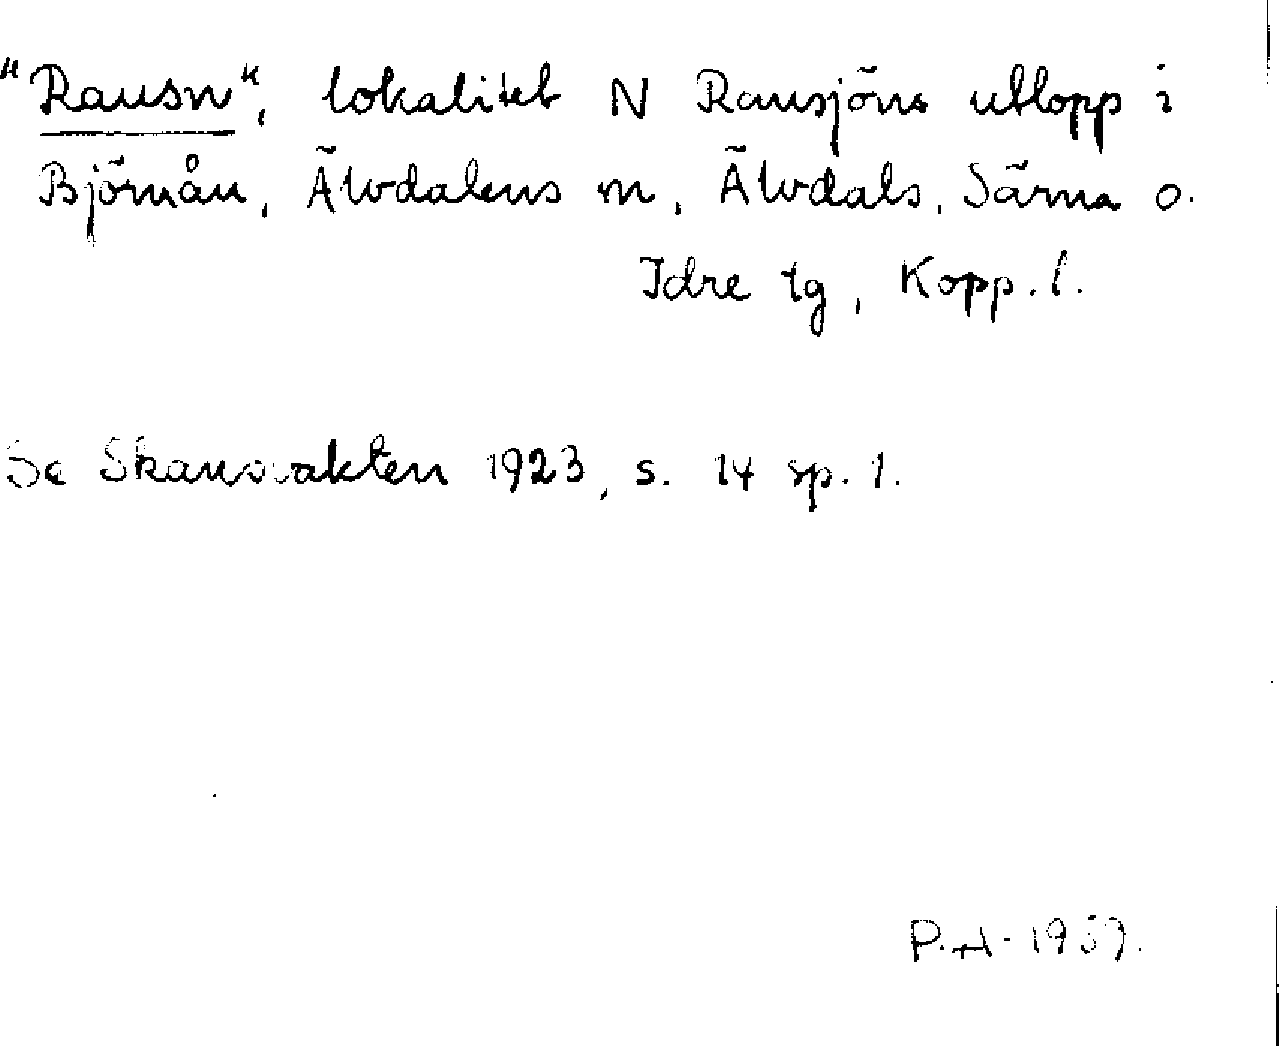 "Rausn", lokalitet N Rausjöns utlopp i
Björnån, Älvdalens sn, Älvdals, Särna o.
Idre tg, Kopp. l.
Se Skansvakten 1923, s. 14 sp. 1.
P.A. 1957.